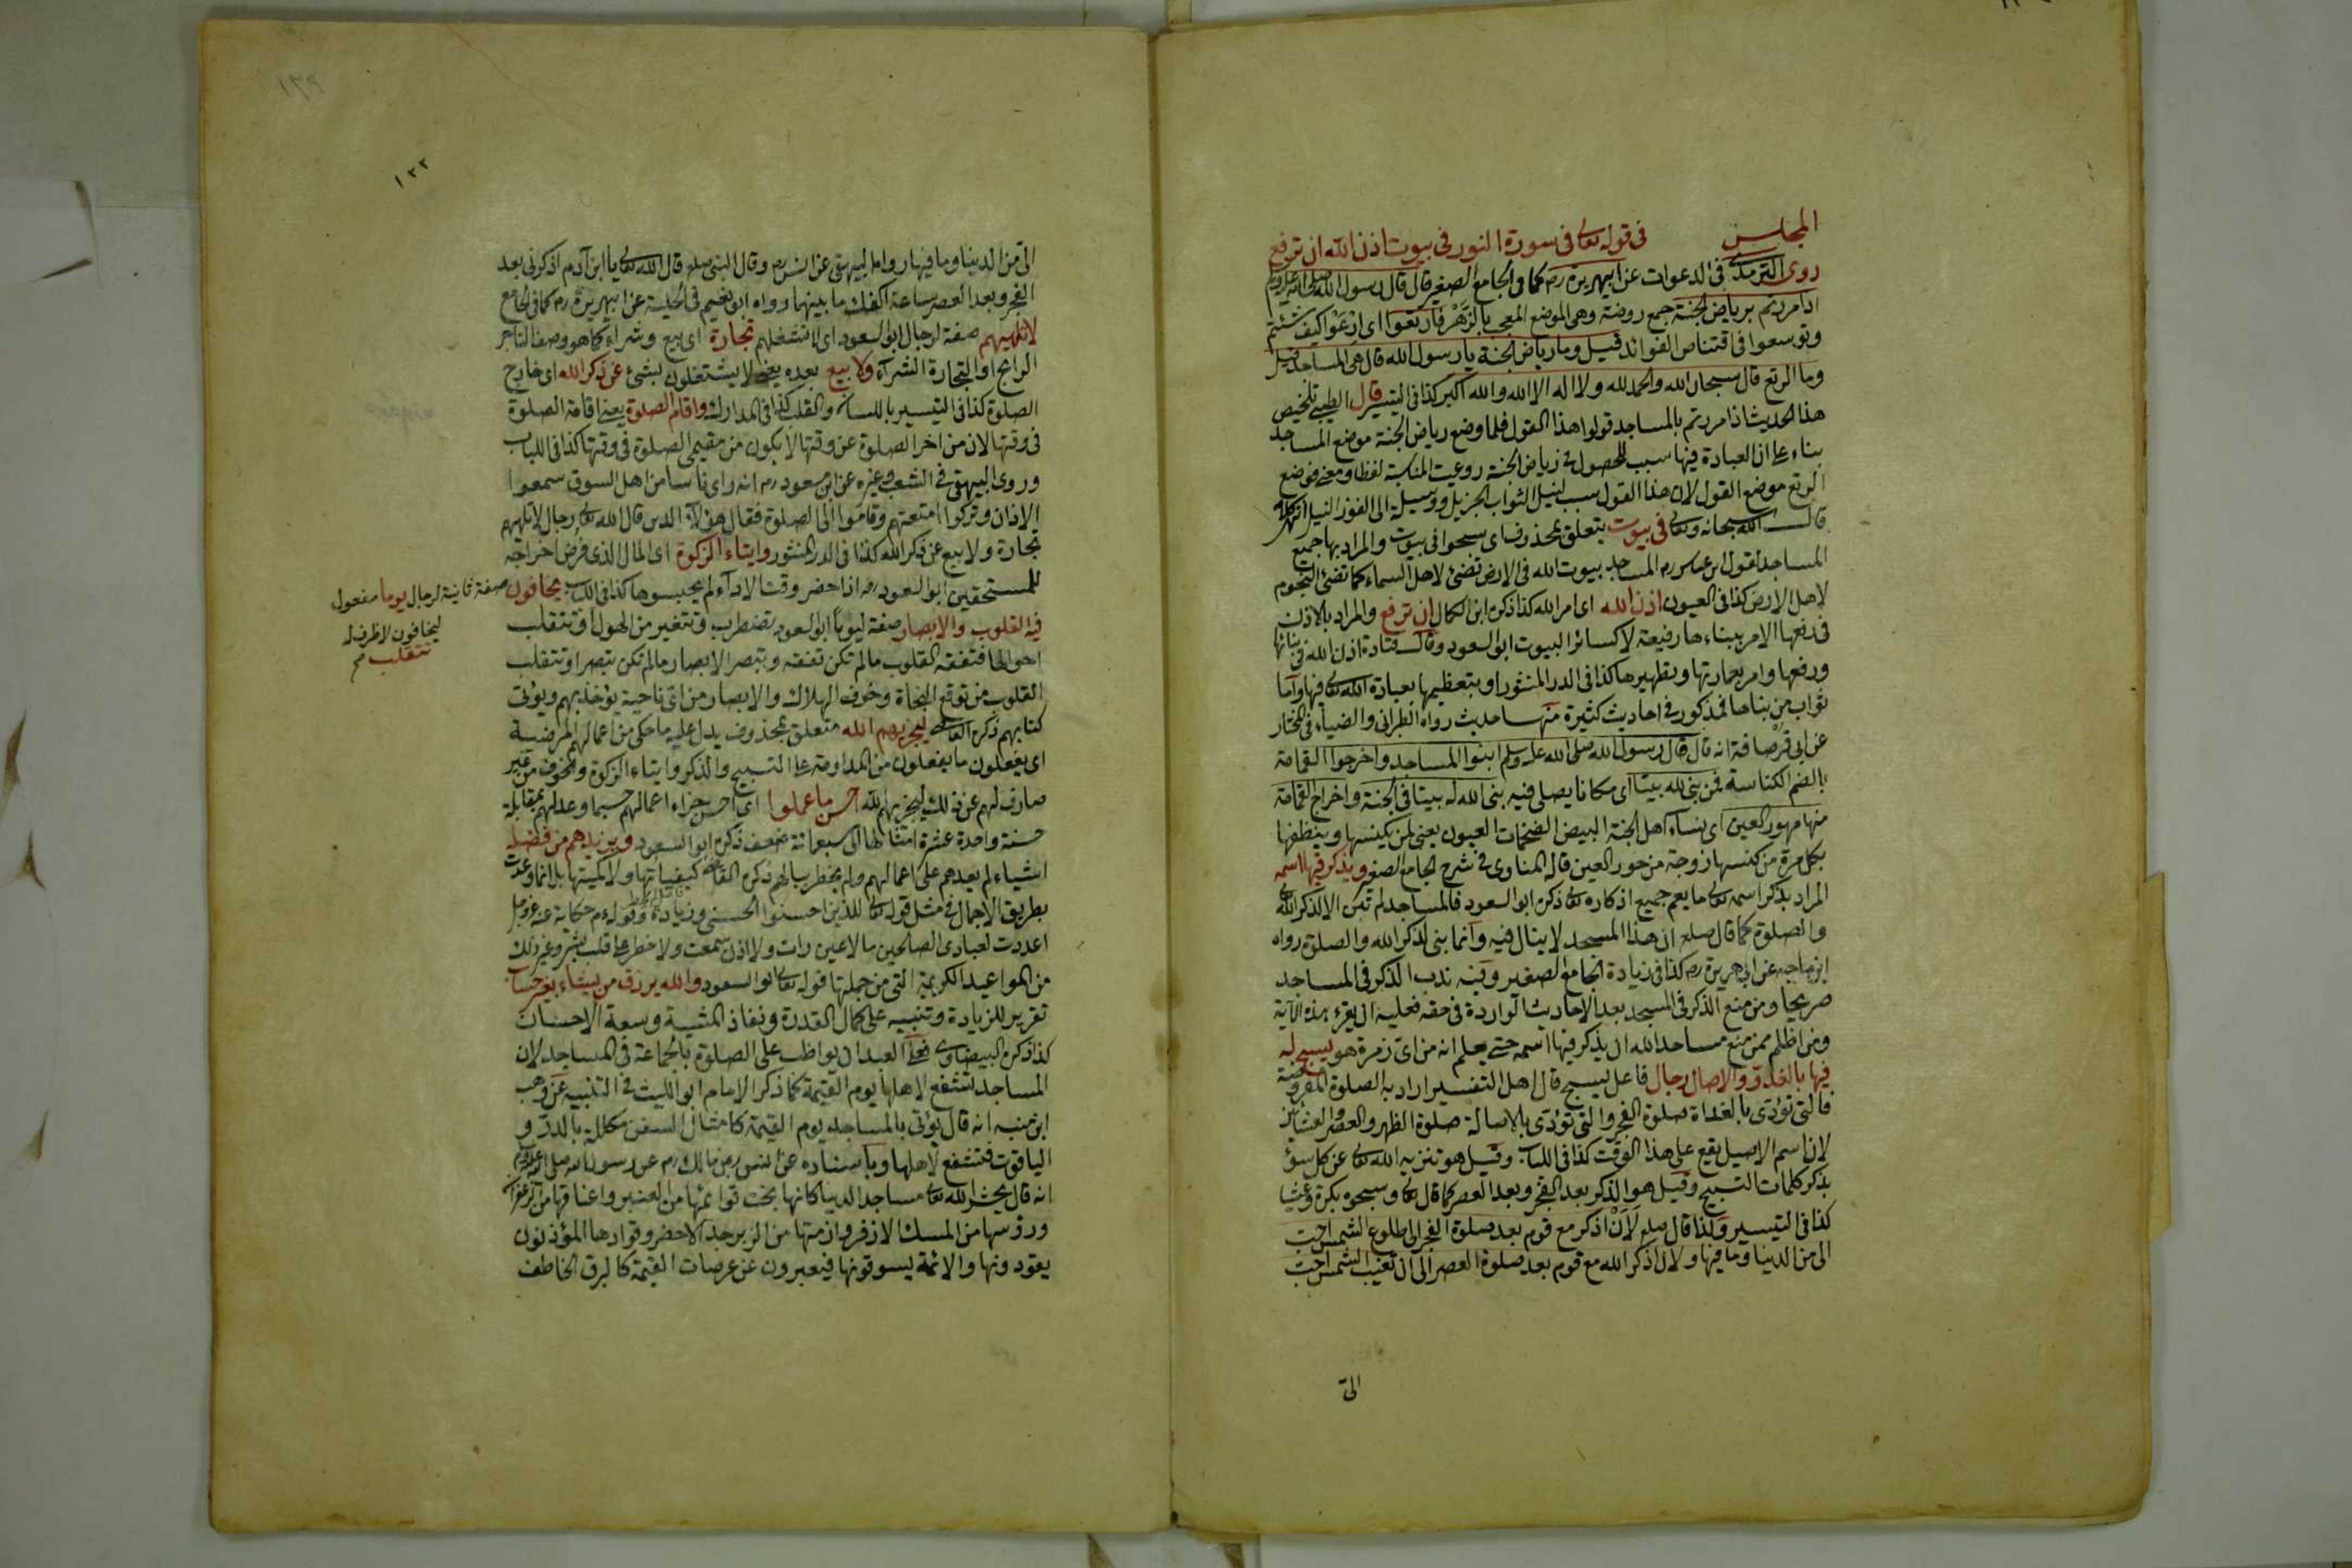 المجلس في قوله تعالى في سورة النور في بيوت اذن الله ان ترفع
روى الترمذي في الدعوات عن ابيهريرة رض كما في الجامع الصغير قال قال رسول الله صلى الله عليه وسلم
اذا مررتم برياض الجنة جمع روضة وهى الموضع المعجب بالزهر فارتعوا اى ارعوا كيف شئتم
وتوسعوا في اقتناص الفوائد قيل وما رياض الجنة يا رسول الله قال هى المساجد قيل
وما الرتع قال سبحان الله والحمد لله ولا اله الا الله والله اكبر كذا في التيسير قال الطيبى تلخيص
هذا الحديث اذا مررتم بالمساجد قولوا هذا القول فلما وضع رياض الجنة موضع المساجد
بناء على ان العبادة فيها سبب للحصول في رياض الجنة روعيت المناسبة لفظا ومعنى فوضع
الرتع موضع القول لان هذا القول سبب لنيل الثواب الجزيل ووسيلة الى الفوز النبيل انتهى كلامه
قال الله سبحانه وتعالى في بيوت يتعلق بمحذوف اى سبحوا في بيوت والمراد بها جميع
المساجد لقول ابن عباس رض المساجد بيوت الله في الارض تضئ لاهل السماء كما تضئ النجوم
لاهل الارض كذا في العيون اذن الله اى امر الله كذا ذكره ابن الكمال ان ترفع والمراد بالاذن
في رفعها الامر ببناءها رفيعة لا كسائر البيوت ابو السعود وقال قتادة اذن الله في بنائها
ورفعها وامر بعمارتها وتطهيرها كذا في الدر المنثور او بتعظيمها بعبادة الله تعالى فيها واما
ثواب من بناها فمذكور في احاديث كثيرة منها حديث رواه الطبرانى والضياء في المختار
عن ابى قرصافة انه قال قال رسول الله صلى الله عليه وسلم ابنوا المساجد واخرجوا القمامة
بالضم الكناسة فمن بنى لله بيتا اى مكانا يصلى فيه بنى الله له بيتا في الجنة واخراج القمامة
منها مهور العين اى نساء اهل الجنة البيض الضخمات العيون يعنى لمن يكنسها وينظفها
بكل مرة من كنسها زوجة من حور العين قاله المناوى في شرح الجامع الصغير ويذكر فيها اسمه
المراد بذكر اسمه تعالى ما يعم جميع اذكاره تعالى ذكره ابو السعود فالمساجد لم تبن الا لذكر الله
والصلوة كما قال صلعم ان هذا المسجد لا يبال فيه وانما بنى لذكر الله والصلوة رواه
ابن ماجه عن ابى هريرة رض كذا في زيادة الجامع الصغير وفيه ندب الذكر في المساجد
صريحا ومن منع الذكر في المسجد بعد الاحاديث الواردة في حقه فعليه ان يقرء هذه الآية
ومن اظلم ممن منع مساجد الله ان يذكر فيها اسمه حتى يعلم انه من اى زمرة هو يسبح له
فيها بالغدو والاصال رجال فاعل ليسبح قال اهل التفسير اراد به الصلوة المفروضة
فالتى تؤدى بالغداة صلوة الفجر والتى تؤدى بالاصالة صلوة الظهر والعصر والعشائين
لان اسم الاصيل يقع على هذا الوقت كذا في اللباب وقيل هو تنزيه الله تعالى عن كل سوء
بذكر كلمات التسبيح وقيل هو الذكر بعد الفجر وبعد العصر كما قال تعالى وسبحوه بكرة وعشيا
كذا في التيسير ولذا قال صلعم لان اذكر مع قوم بعد صلوة الفجر الى طلوع الشمس احب
الى من الدنيا وما فيها ولان اذكر الله مع قوم بعد صلوة العصر الى ان تغيب الشمس احب
الى
١٣٩
١٣٢
الى من الدنيا وما فيها رواه البيهقى عن انس رض وقال النبى صلعم قال الله تعالى يا ابن آدم اذكرنى بعد
الفجر وبعد العصر ساعة اكفك ما بينهما رواه ابو نعيم في الحلية عن ابيهريرة رض كما في الجامع
لا تلهيهم صفة لرجال ابو السعود اى لا تشغلهم تجارة اى بيع وشراء كما هو وصف التاجر
الرابح او التجارة الشراء ولا بيع بعده يعنى لا يشتغلون بشئ عن ذكر الله اى خارج
الصلوة كذا في التيسير باللسان والقلب كذا في المدارك واقام الصلوة يعنى اقامة الصلوة
في وقتها لان من اخر الصلوة عن وقتها لا يكون من مقيمى الصلوة في وقتها كذا في اللباب
وروى البيهقى في الشعب وغيره عن ابن مسعود رض انه راى ناسا من اهل السوق سمعوا
الاذان وتركوا امتعتهم وقاموا الى الصلوة فقال هؤلاء الذين قال الله تعالى رجال لا تلهيهم
تجارة ولا بيع عن ذكر الله كذا في الدر المنثور وايتاء الزكوة اى المال الذى فرض اخراجه
للمستحقين ابو السعود اذا حضر وقت الاداء لم يحبسوها كذا في اللباب يخافون صفة ثانية لرجال يوما مفعول
ليخافون لا ظرف له
تتقلب صح
فيه القلوب والابصار صفة ليوما ابو السعود تضطرب وتتغير من الهول او تتقلب
احوالها فتفقه القلوب ما لم تكن تفقه وتبصر الابصار ما لم تكن تبصر او تتقلب
القلوب من توقع النجاة وخوف الهلاك والابصار من اى ناحية يؤخذ بهم ويؤتى
كتابهم ذكره القاضى ليجزيهم الله متعلق بمحذوف يدل عليه ما حكى من اعمالهم المرضية
اى يفعلون ما يفعلون من المداومة على التسبيح والذكر وايتاء الزكوة والخوف من غير
صارف لهم عن ذلك ليجزيهم الله احسن ما عملوا اى احسن جزاء اعمالهم حسبما وعد لهم بمقابلة
حسنة واحدة عشرة امثالها الى سبعمائة ضعف ذكره ابو السعود ويزيدهم من فضله
اشياء لم يعدهم على اعمالهم ولم يخطر ببالهم ذكره القاضى كيفياتها ولا كميتها بل انما وعدت
بطريق الاجمال في مثل قوله تعالى للذين احسنوا الحسنى وزيادة وقوله م حكاية عنه عز وجل
اعددت لعبادى الصالحين ما لا عين رات ولا اذن سمعت ولا خطر على قلب بشر وغير ذلك
من المواعيد الكريمة التى من جملتها قوله تعالى ابو السعود والله يرزق من يشاء بغير حساب
تقرير للزيادة وتنبيه على كمال القدرة ونفاذ المشية وسعة الاحسان
كذا ذكره البيضاوى فعلى العبد ان يواظب على الصلوة بالجماعة في المساجد لان
المساجد تشفع لاهلها يوم القيمة كما ذكر الامام ابو الليث في التنبيه عن وهب
ابن منبه انه قال يؤتى بالمساجد يوم القيمة كامثال السفن مكللة بالدر و
الياقوت فتشفع لاهلها وباسناده عن انس بن مالك رض عن رسول الله صلى الله عليه وسلم
انه قال يحشر الله تعالى مساجد الدنيا كانها بخت قوائمها من العنبر واعناقها من الزعفران
ورؤسها من المسك الاذفر وازمتها من الزبرجد الاخضر وقوادها المؤذنون
يقودونها والائمة يسوقونها فيعبرون عن عرصات القيمة كالبرق الخاطف